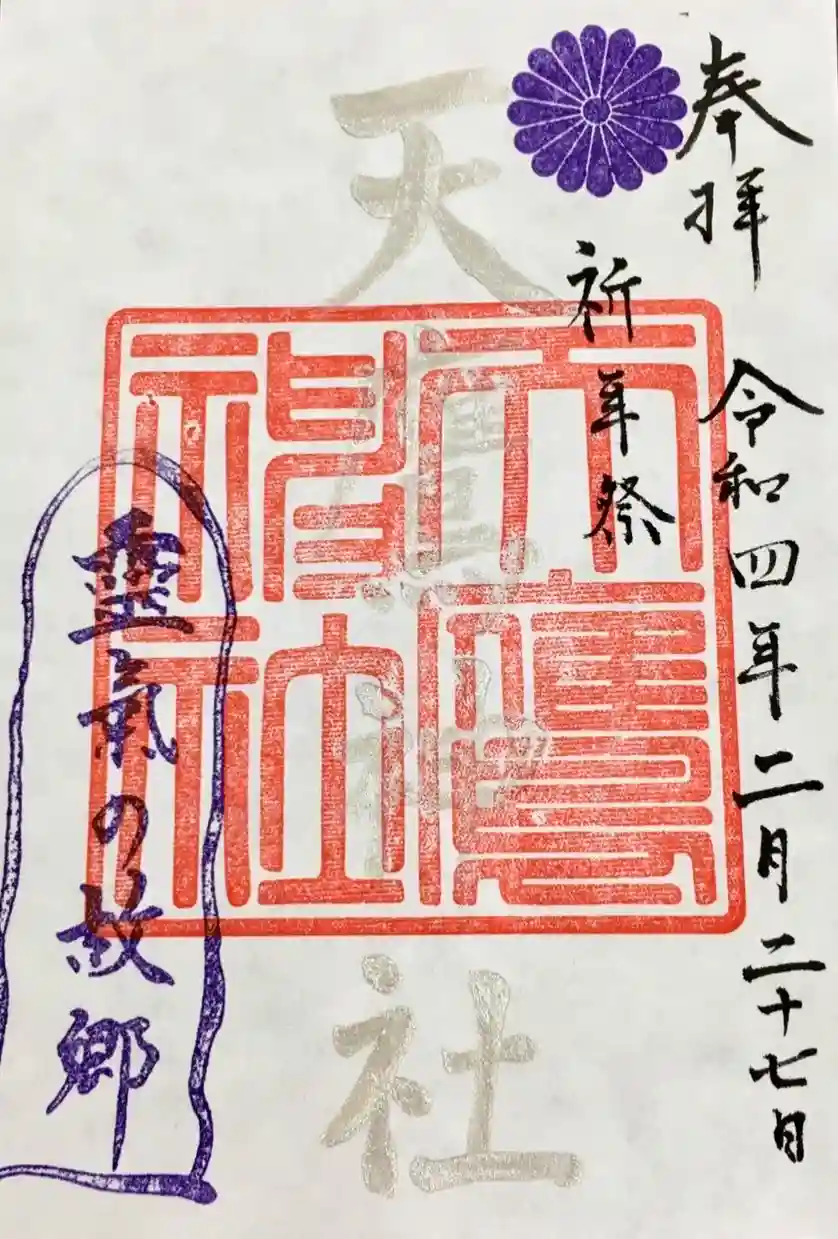 奉拝 令和四年二月二十七日
祈年祭
天鷹神社
天鷹
神社
靈氣の故郷